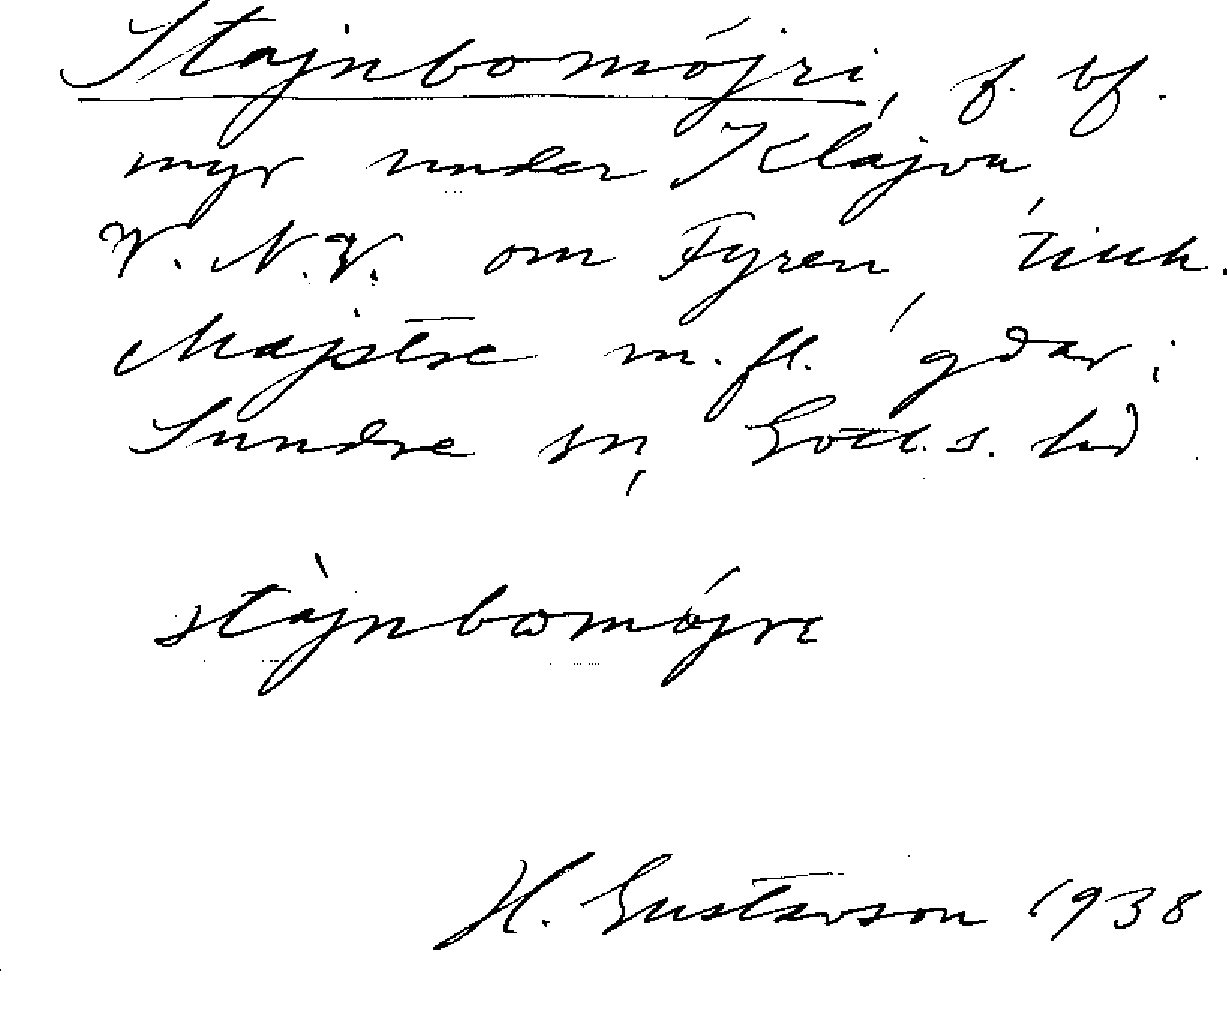 Stajnbomójri, f. bf.
myr under Klajvu
V. N.V. om Fyren, tillh.
Majstre m.fl. gdar;
Sundre sn, Gotl. s. hd
stàjnbomójri
H. Gustavson 1938